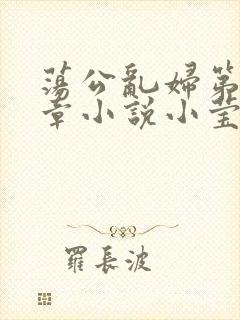 蕩公亂婦第
章小説小莹
羅長波